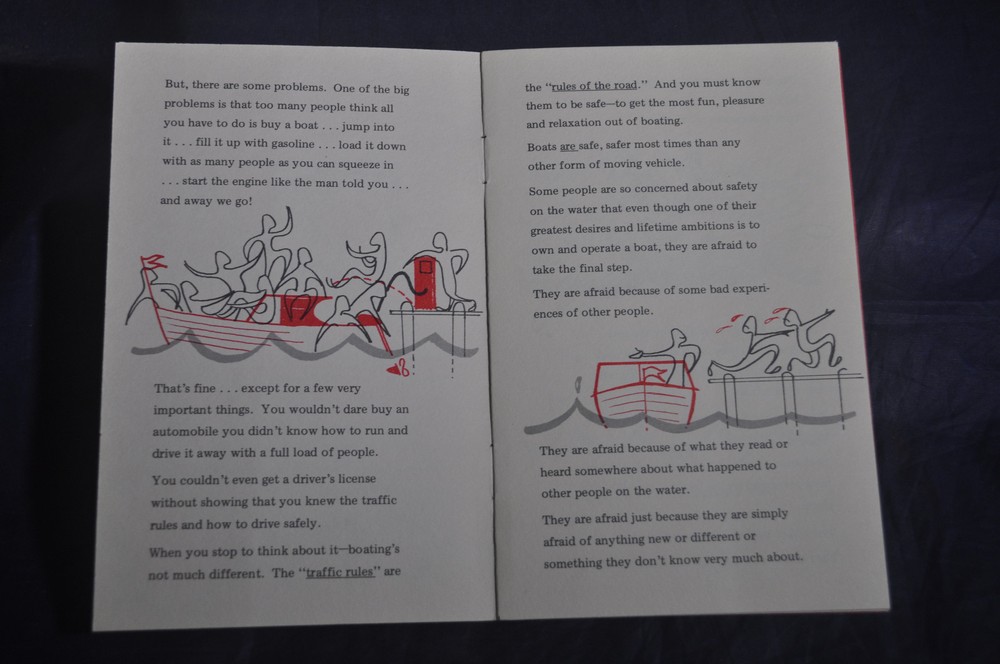 But, there are some problems. One of the big
problems is that too many people think all
you have to do is buy a boat . . . jump into
it . . . fill it up with gasoline . . . load it down
with as many people as you can squeeze in
. . . start the engine like the man told you . . .
and away we go!
That's fine . . . except for a few very
important things. You wouldn't dare buy an
automobile you didn't know how to run and
drive it away with a full load of people.
You couldn't even get a driver's license
without showing that you knew the traffic
rules and how to drive safely.
When you stop to think about it—boating's
not much different. The "traffic rules" are
the "rules of the road." And you must know
them to be safe—to get the most fun, pleasure
and relaxation out of boating.
Boats are safe, safer most times than any
other form of moving vehicle.
Some people are so concerned about safety
on the water that even though one of their
greatest desires and lifetime ambitions is to
own and operate a boat, they are afraid to
take the final step.
They are afraid because of some bad experi-
ences of other people.
They are afraid because of what they read or
heard somewhere about what happened to
other people on the water.
They are afraid just because they are simply
afraid of anything new or different or
something they don't know very much about.